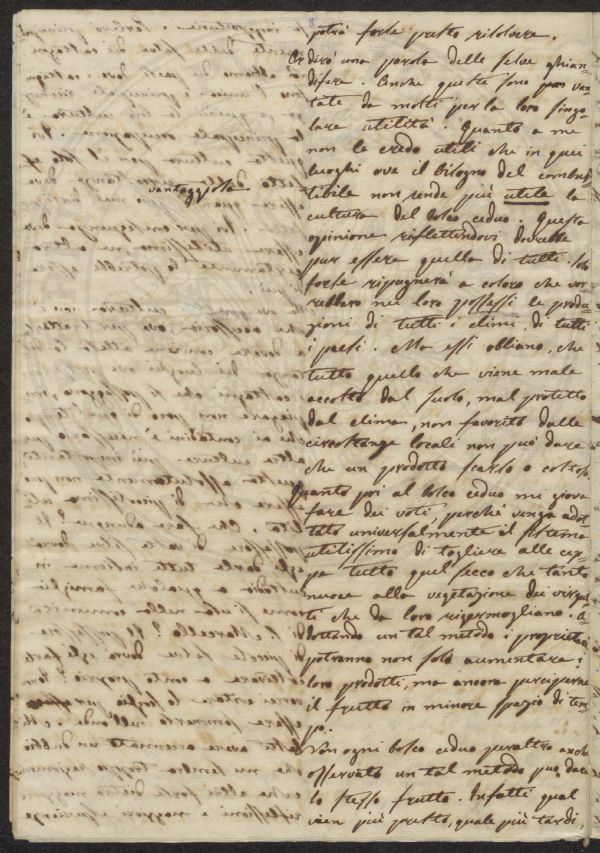 8
potrà forse presto risolvere.
Or dirò una parola delle selve ghian=
difere. Anche queste sono van=
tate da molti per la loro singo=
lare utilità. Quanto a me
non le credo utili che in quei
luoghi ove il bisogno del combus=
tibile non rende più utile la
vantaggiosa
cultura del bosco ceduo. Questa
opinione riflettendovi dovrebbe
pur essere quella di tutti. Solo
forse ripugnerà a coloro che vor=
rebbero nei loro possessi le produ=
zioni di tutti i climi, di tutti
i paesi. Ma essi obliano, che
tutto quello che viene male
accolto dal suolo, mal protetto
dal clima, non favorito dalle
circostanze locali non può dare
che un prodotto scarso o costoso.
Quanto poi al bosco ceduo mi giova
fare dei voti perchè venga adot=
tato universalmente il sistema
utilissimo di togliere alle cep=
pa tutto quel secco che tanto
nuoce alla vegetazione dei virgul=
ti che da loro rigermogliano. A=
dottando un tal metodo i proprietarj
potranno non solo aumentare i
loro prodotti, ma ancora perciperne
il frutto in minore spazio di tem=
po.
Non ogni bosco ceduo peraltro anche
osservato un tal metodo può dare
lo stesso frutto. Infatti qual
vien più presto, quale più tardi,